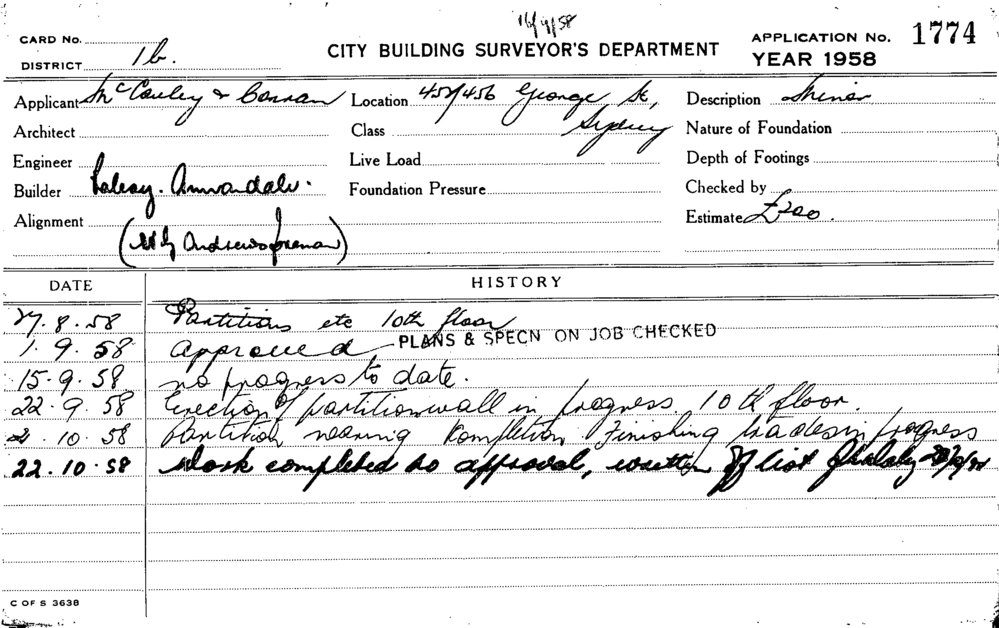 16/9/58
CARD No.
CITY BUILDING SURVEYOR'S DEPARTMENT
APPLICATION No. 1774
DISTRICT 1b.
YEAR 1958
Applicant McCauley &
Location 452/456 George St,
Sydney
Description Minor
Architect
Class
Nature of Foundation
Engineer
Live Load
Depth of Footings
Builder Annandale.
Foundation Pressure
Checked by
Alignment
Estimate £200.
(Andrews foreman)
DATE
HISTORY
27.8.58 Partitions etc 10th floor
1.9.58 approved - PLANS & SPECN ON JOB CHECKED
15.9.58 no progress to date.
22.9.58 Erection of partition wall in progress. 10th floor.
2.10.58 Partition nearing Kompletion Finishing trades in progress
22.10.58 Work completed as approval, written off list
C OF S 3638